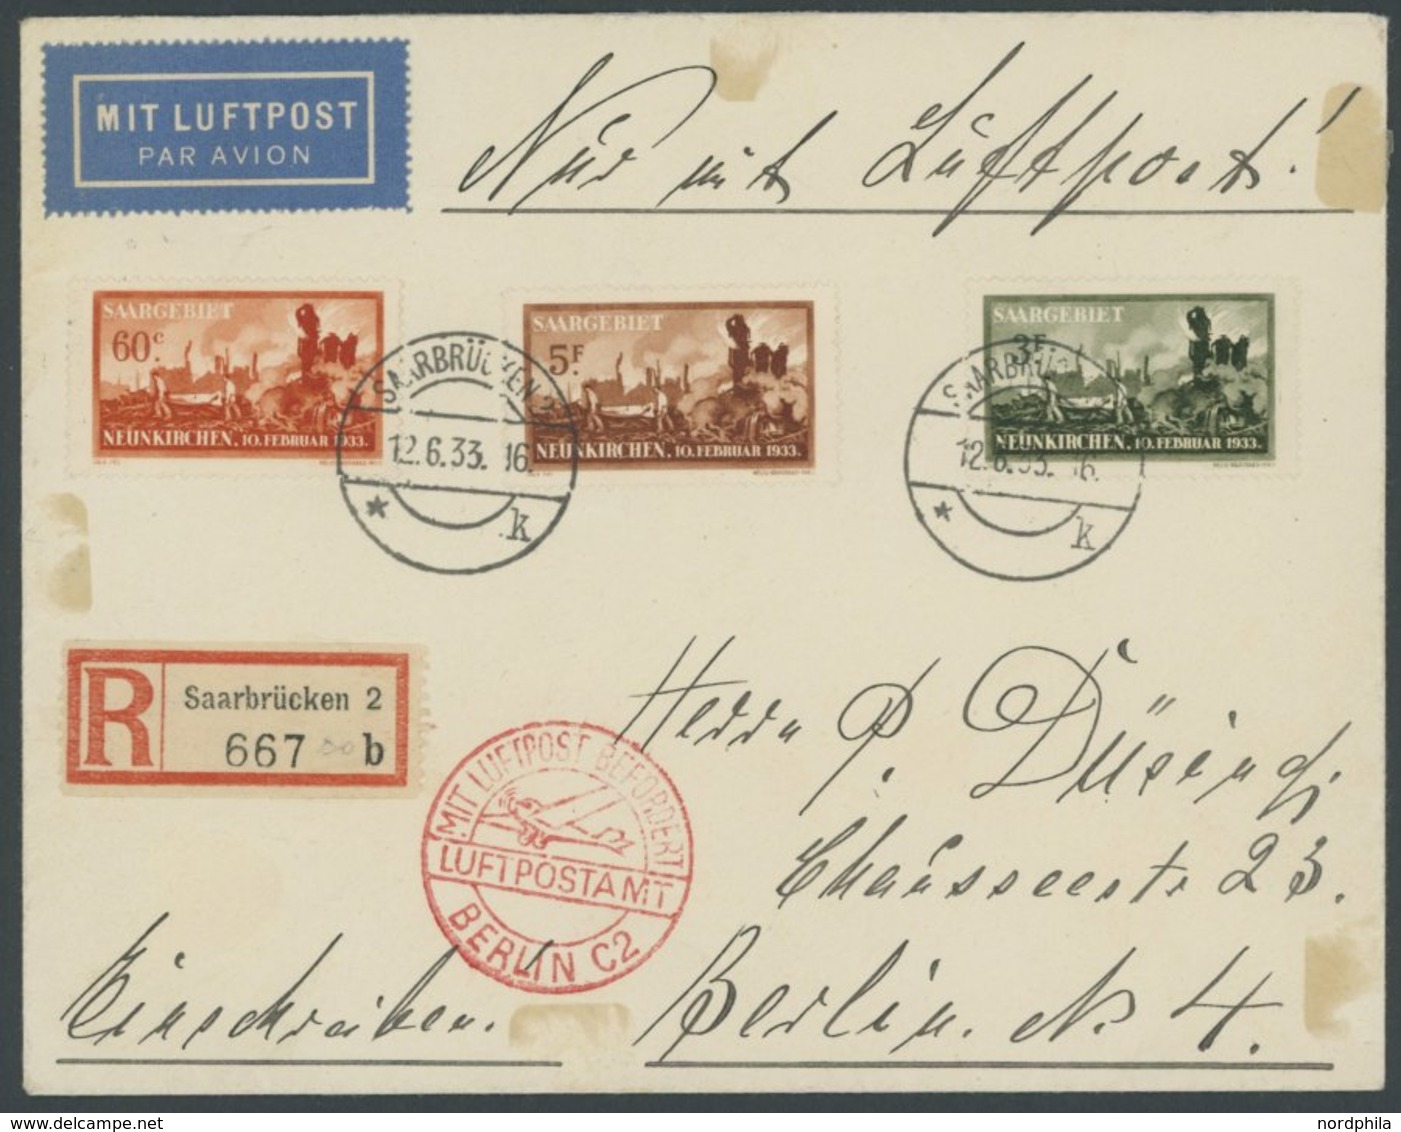 MIT LUFTPOST
PAR AVION
Nur mit Luftpost!
SAARGEBIET
60c.
NEUNKIRCHEN, 10. FEBRUAR 1933.
SAARGEBIET
5F.
NEUNKIRCHEN, 10. FEBRUAR 1933.
SAARGEBIET
3F.
NEUNKIRCHEN, 10. FEBRUAR 1933.
SAARBRÜCKEN 2
12.6.33. 16.
* k
SAARBRÜ
12.6.33. 16.
* k
R
Saarbrücken 2
667 b
MIT LUFTPOST BEFÖRDERT
LUFTPOSTAMT
BERLIN C2
Herrn P. Düsing,
Chausseestr 23.
Einschreiben.
Berlin. N. 4.
nordphila